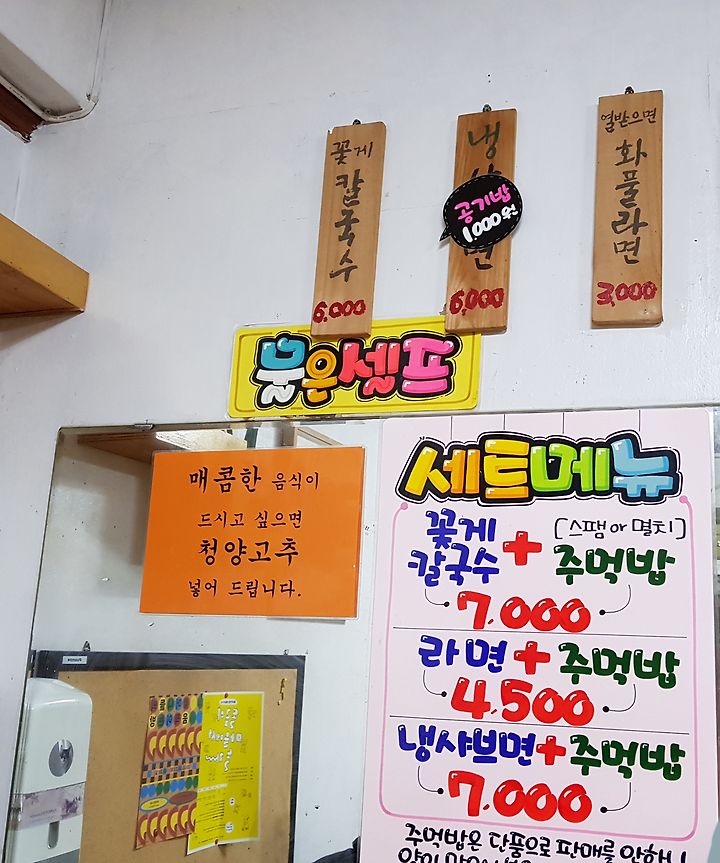 꽃게
칼국수
6,000
냉
면
6,000
공기밥
1000원
열받으면
화풀라면
3,000
물은셀프
매콤한 음식이
드시고 싶으면
청양고추
넣어 드립니다.
세트메뉴
꽃게
칼국수 + [스팸 or 멸치]
주먹밥
7,000
라면 + 주먹밥
4,500
냉샤브면 + 주먹밥
7,000
주먹밥은 단품으로 판매를 안해